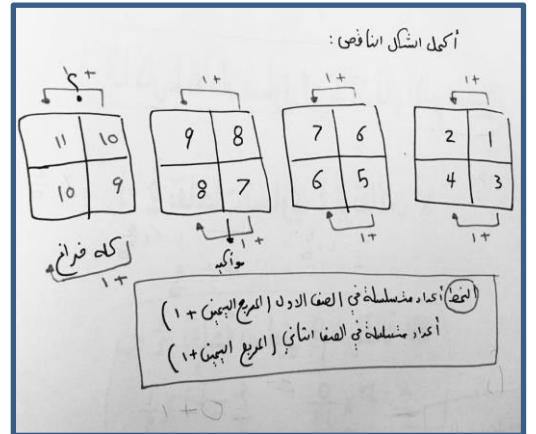 أكمل الشكل الناقص :
1+ 1+ 1+ 1+
؟
2 1 7 6 9 8 11 10
4 3 6 5 8 7 10 9
1+ 1+ 1+ 1+
كله فراغ
مو أكيد
النمط أعداد متسلسلة في الصف الاول (المربع اليمين + 1)
أعداد متسلسلة في الصف الثاني (المربع اليمين + 1)